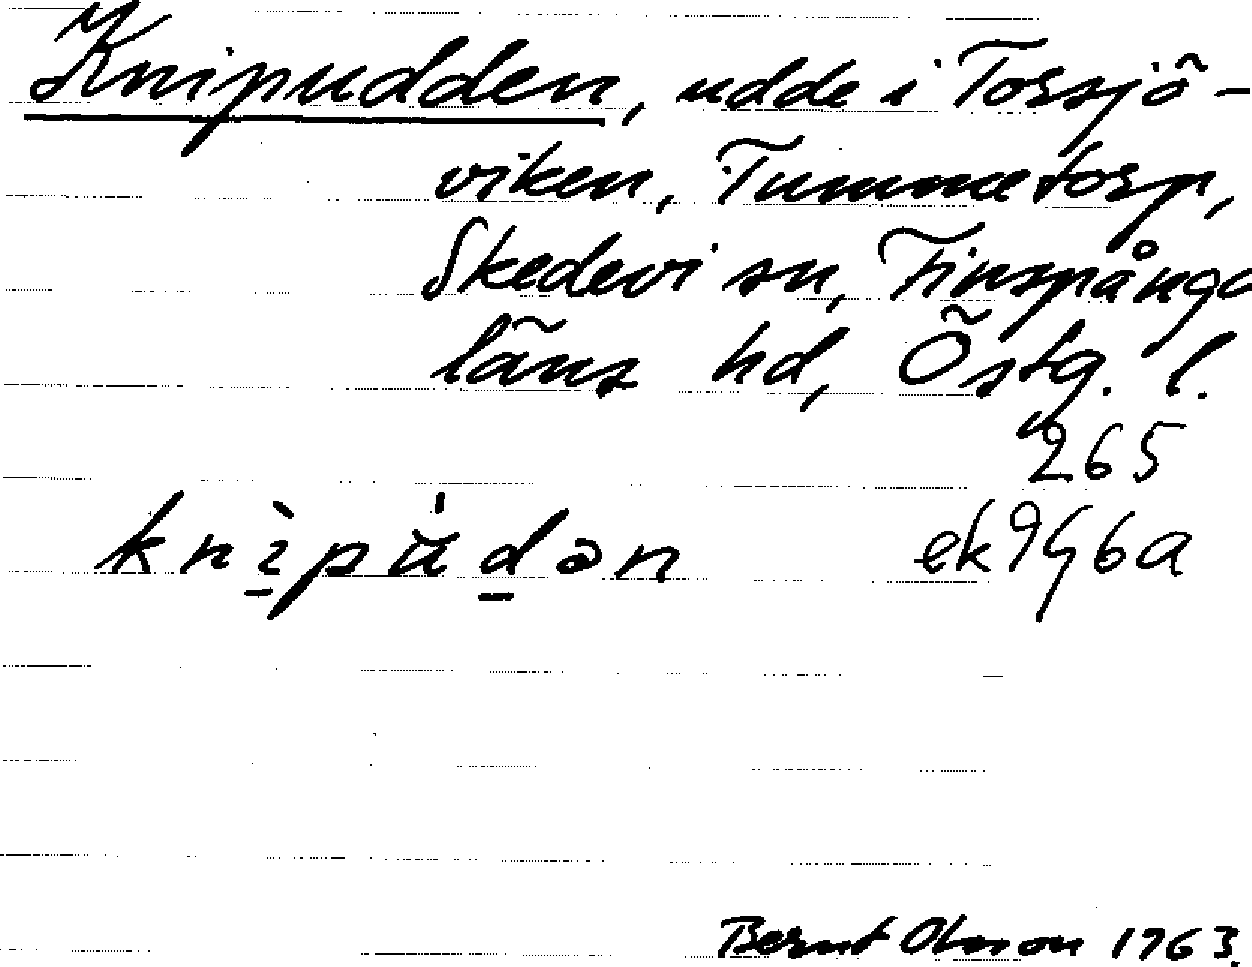 Knipudden, udde i Torsjö-
viken, Tummetorp,
Skedevi sn, Finspånga
läns hd, Östg. l.
265
knìpùdən ek 9G6a
Bernt Olsson 1963.